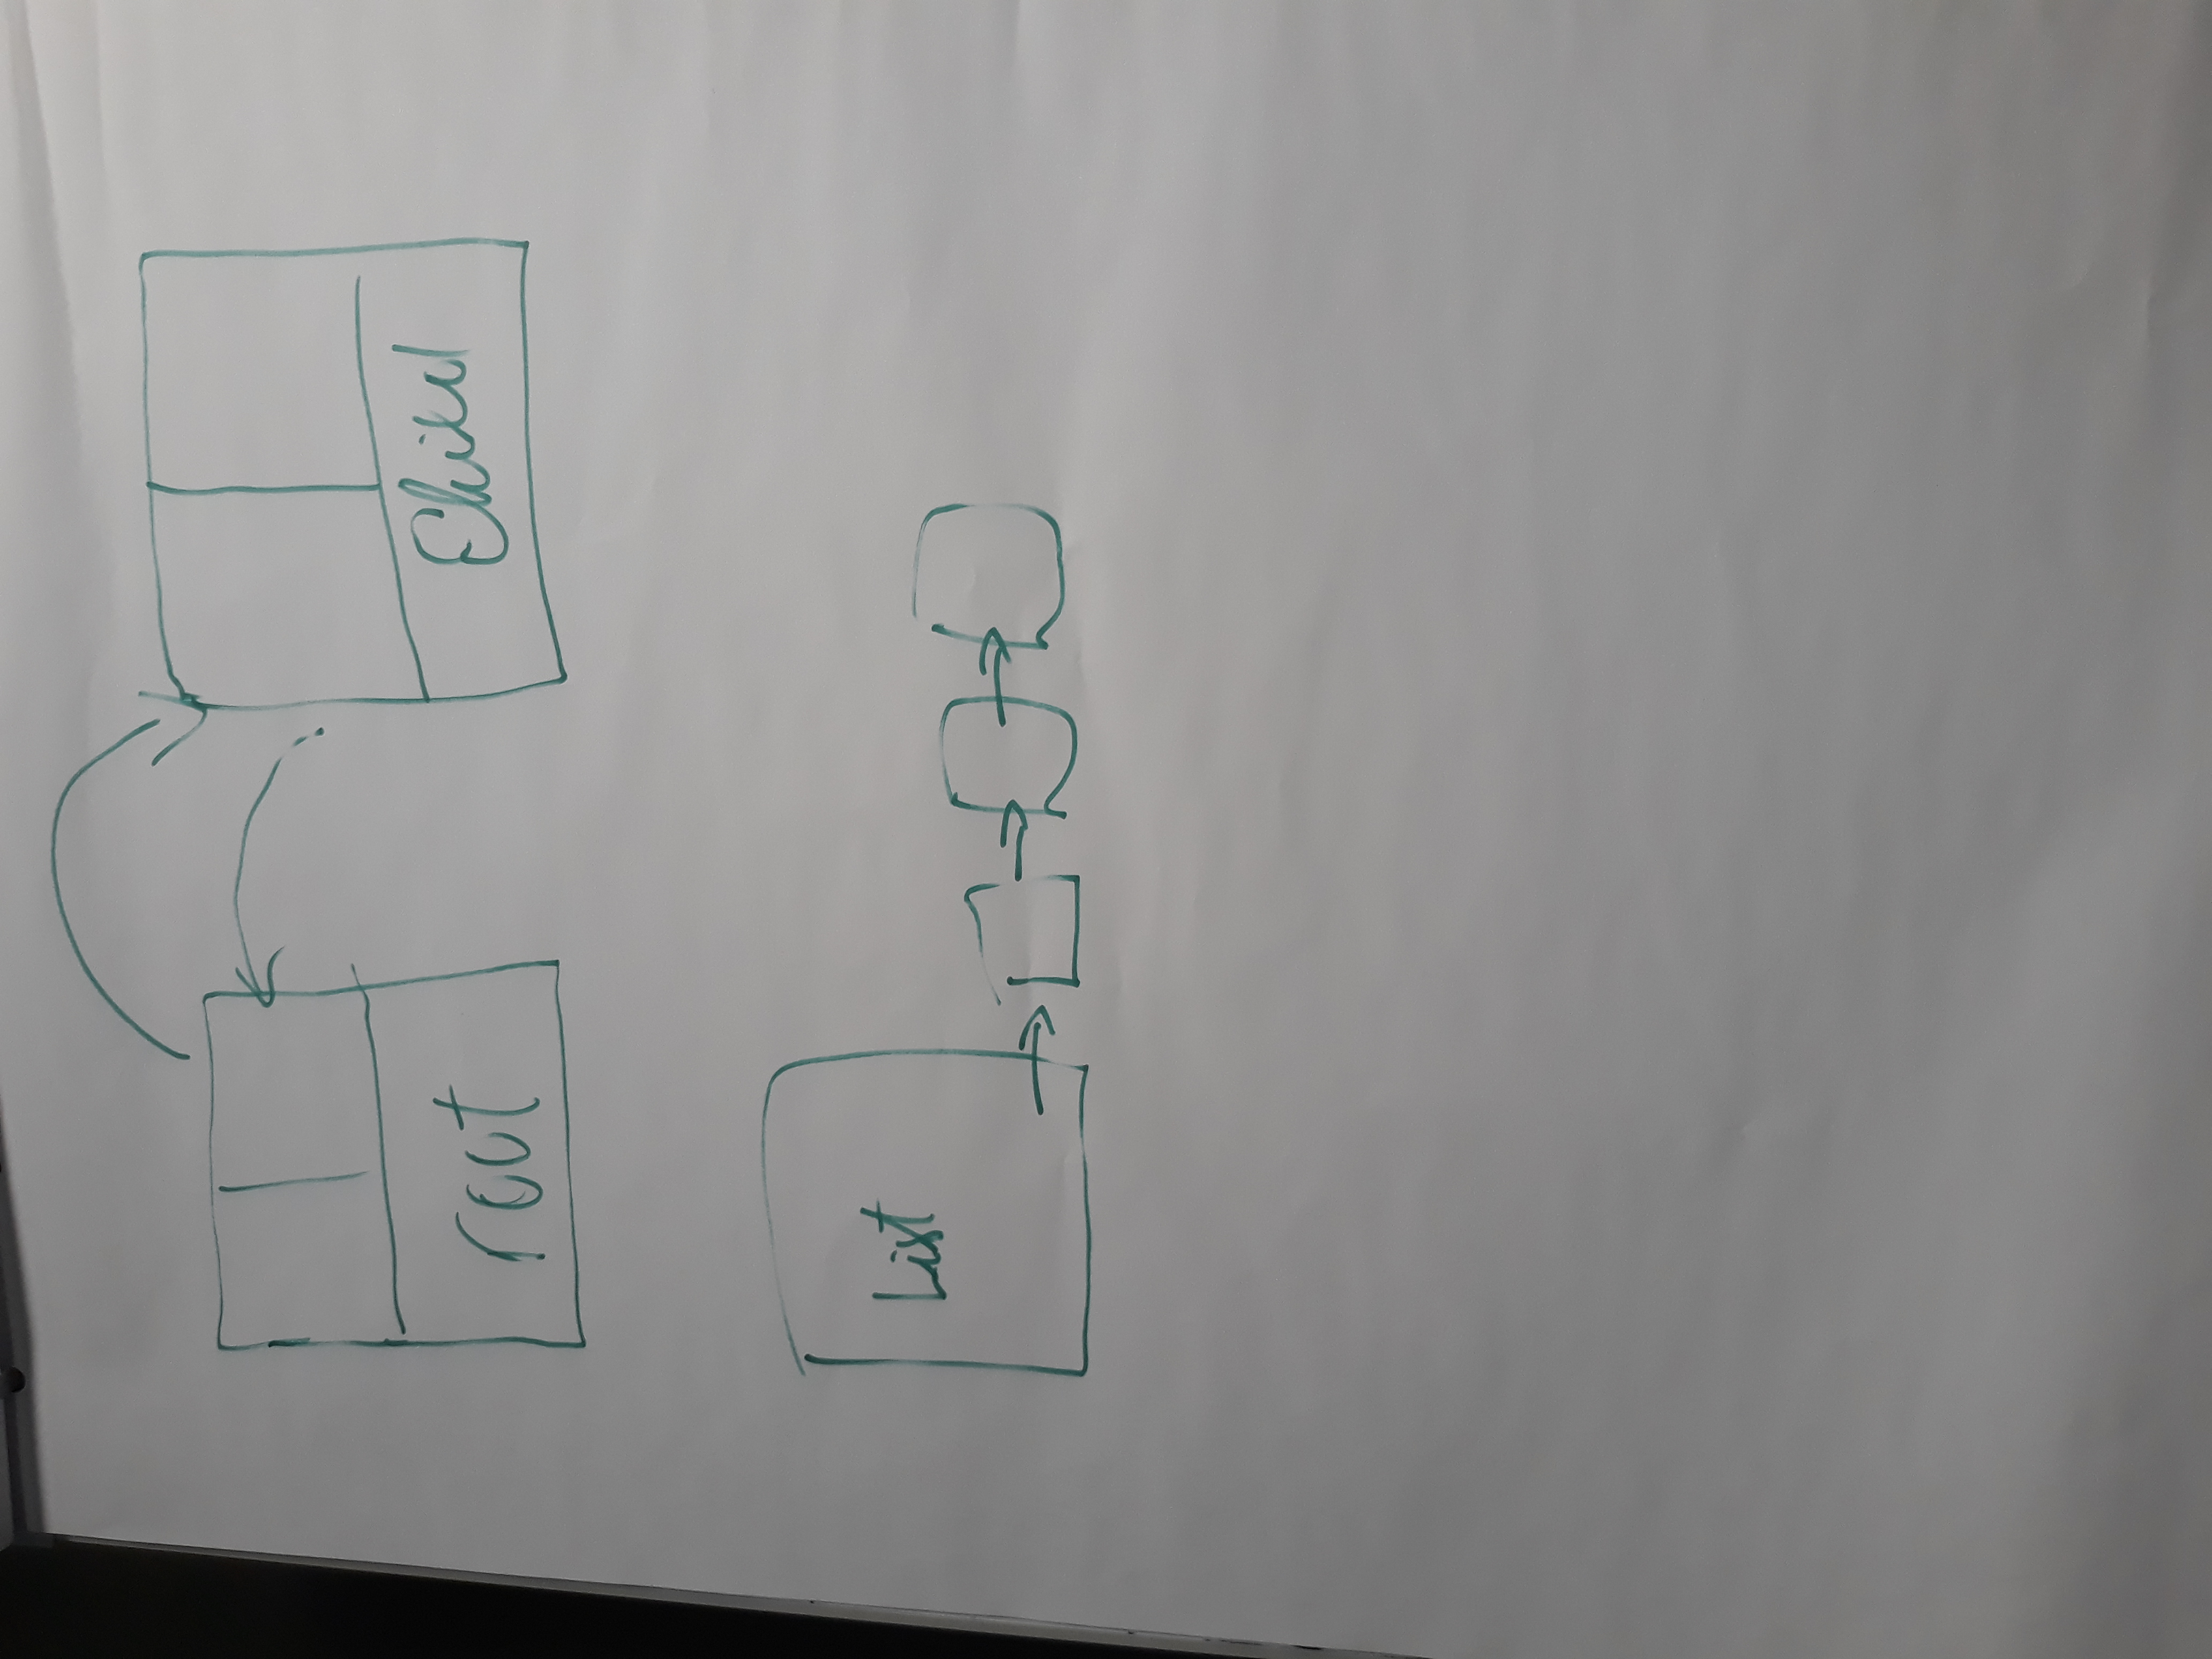 root
Child
List